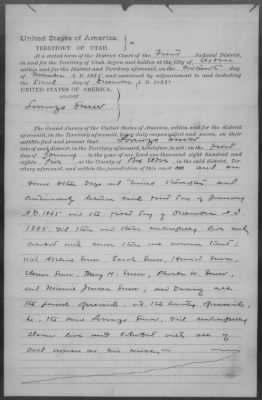 United States of America.
TERRITORY OF UTAH. ss.
At a stated term of the District Court of the First Judicial District,
in and for the Territory of Utah, begun and holden at the City of Ogden
within and for the District and Territory aforesaid, on the day
of November A. D. 1885, and continued by adjournment to and including
the day of December A. D. 1885.
UNITED STATES OF AMERICA,
AGAINST
Lorenzo Snow
The Grand Jurors of the United States of America, within and for the district,
and Territory aforesaid, being duly empaneled and sworn, on their
oaths find and present that Lorenzo Snow
late of said district, in the Territory aforesaid, heretofore, to wit: on the first
day of January in the year of our Lord one thousand eight hundred and
eighty five at the County of Box Elder, in the said district, Ter-
ritory aforesaid, and within the jurisdiction of this court and on
divers other days and times thereafter and
continuously between said first day of January
A.D. 1885 and the first day of December A.D.
1885. Did then and there unlawfully live and
cohabit with more than one woman to wit:
with Adeline Snow, Sarah Snow, Harriet Snow,
Eleanor Snow, Mary H. Snow, Phoebe W. Snow,
and Minnie Jensen Snow; and during all
the period aforesaid, at the County aforesaid,
he, the said Lorenzo Snow, did unlawfully
claim live and cohabit with all of
said women as his wives,